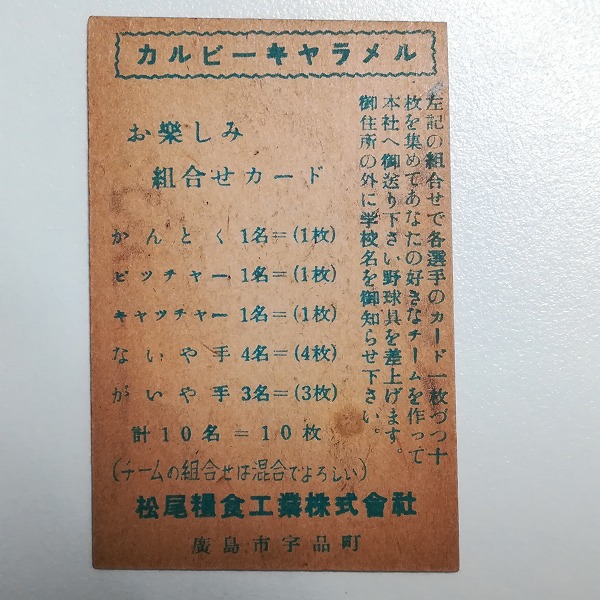 カルビーキャラメル
お樂しみ
組合せカード
かんとく 1名=(1枚)
ピッチャー 1名=(1枚)
キャッチャー 1名=(1枚)
ないや手 4名=(4枚)
がいや手 3名=(3枚)
計10名=10枚
(チームの組合せは混合でよろしい)
左記の組合せで各選手のカード一枚づつ十
枚を集めてあなたの好きなチームを作って
本社へ御送り下さい野球具を差上げます。
御住所の外に学校名を御知らせ下さい。
松尾糧食工業株式會社
廣島市宇品町